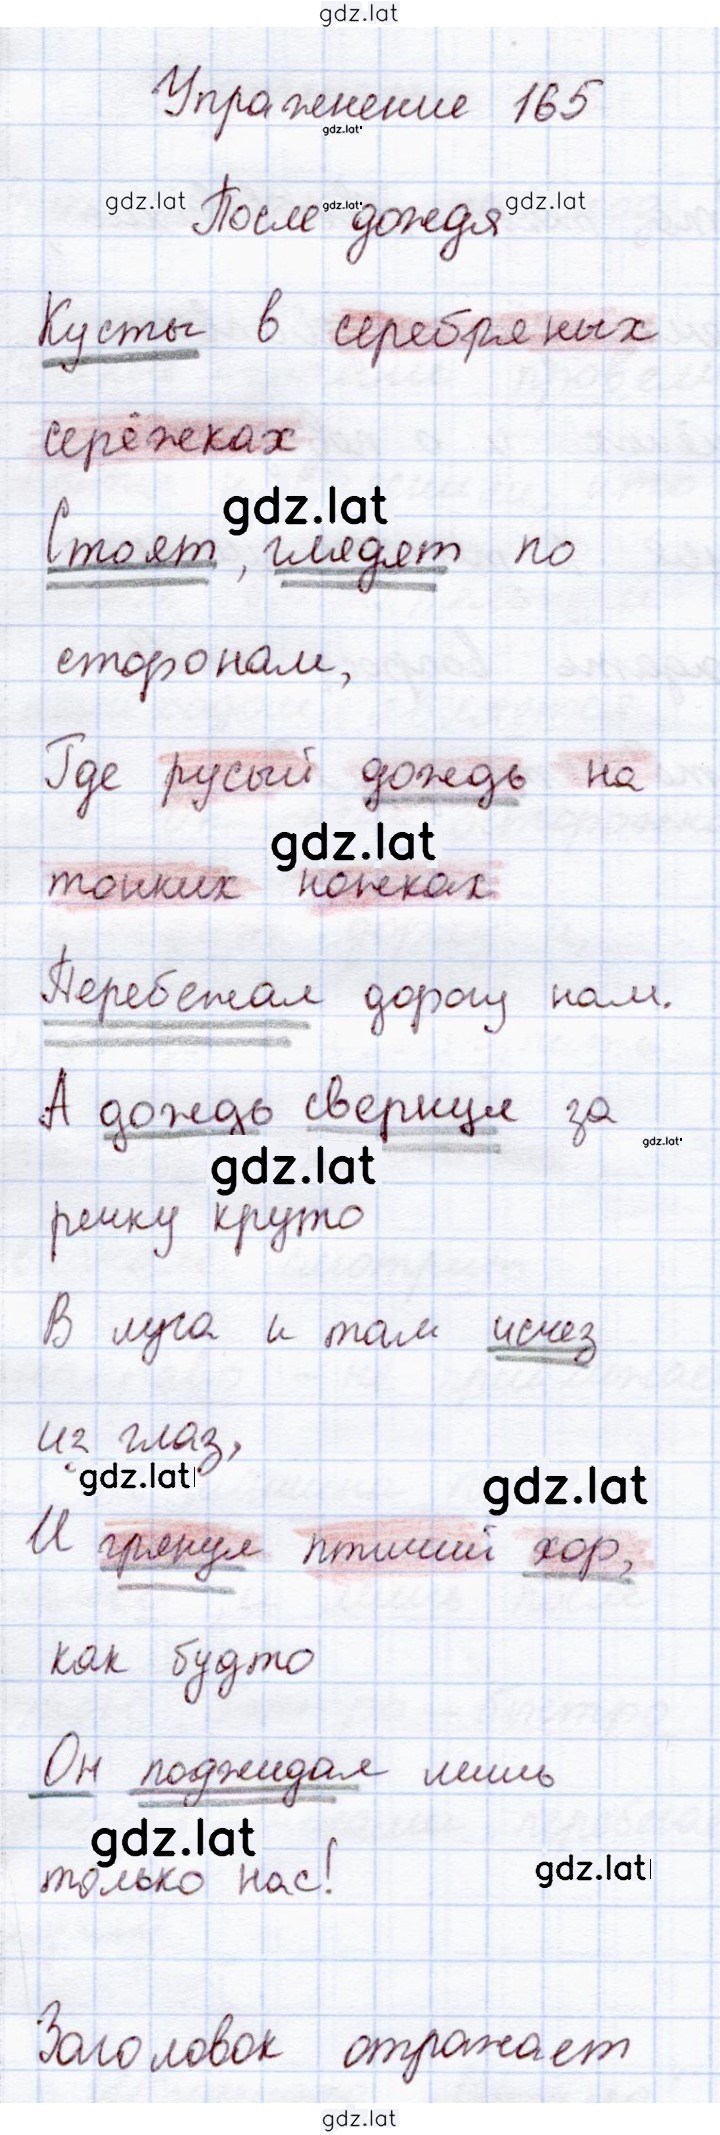 gdz.lat
Упражнение 165
gdz.lat
gdz.lat gdz.lat gdz.lat
После дождя
Кусты в серебряных
серёжках
gdz.lat
Стоят, глядят по
сторонам,
Где русый дождь на
gdz.lat
тонких ножках
Перебежал дорогу нам.
А дождь свернул за
gdz.lat
gdz.lat
речку круто
В луга и там исчез
из глаз,
gdz.lat gdz.lat
И грянул птичий хор,
как будто
Он поджидал лишь
gdz.lat
gdz.lat
только нас!
Заголовок отражает
gdz.lat